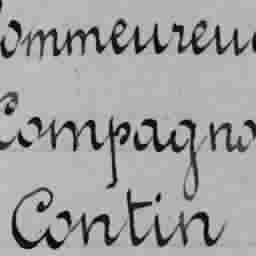 Commeureuc
Compagno
Contin